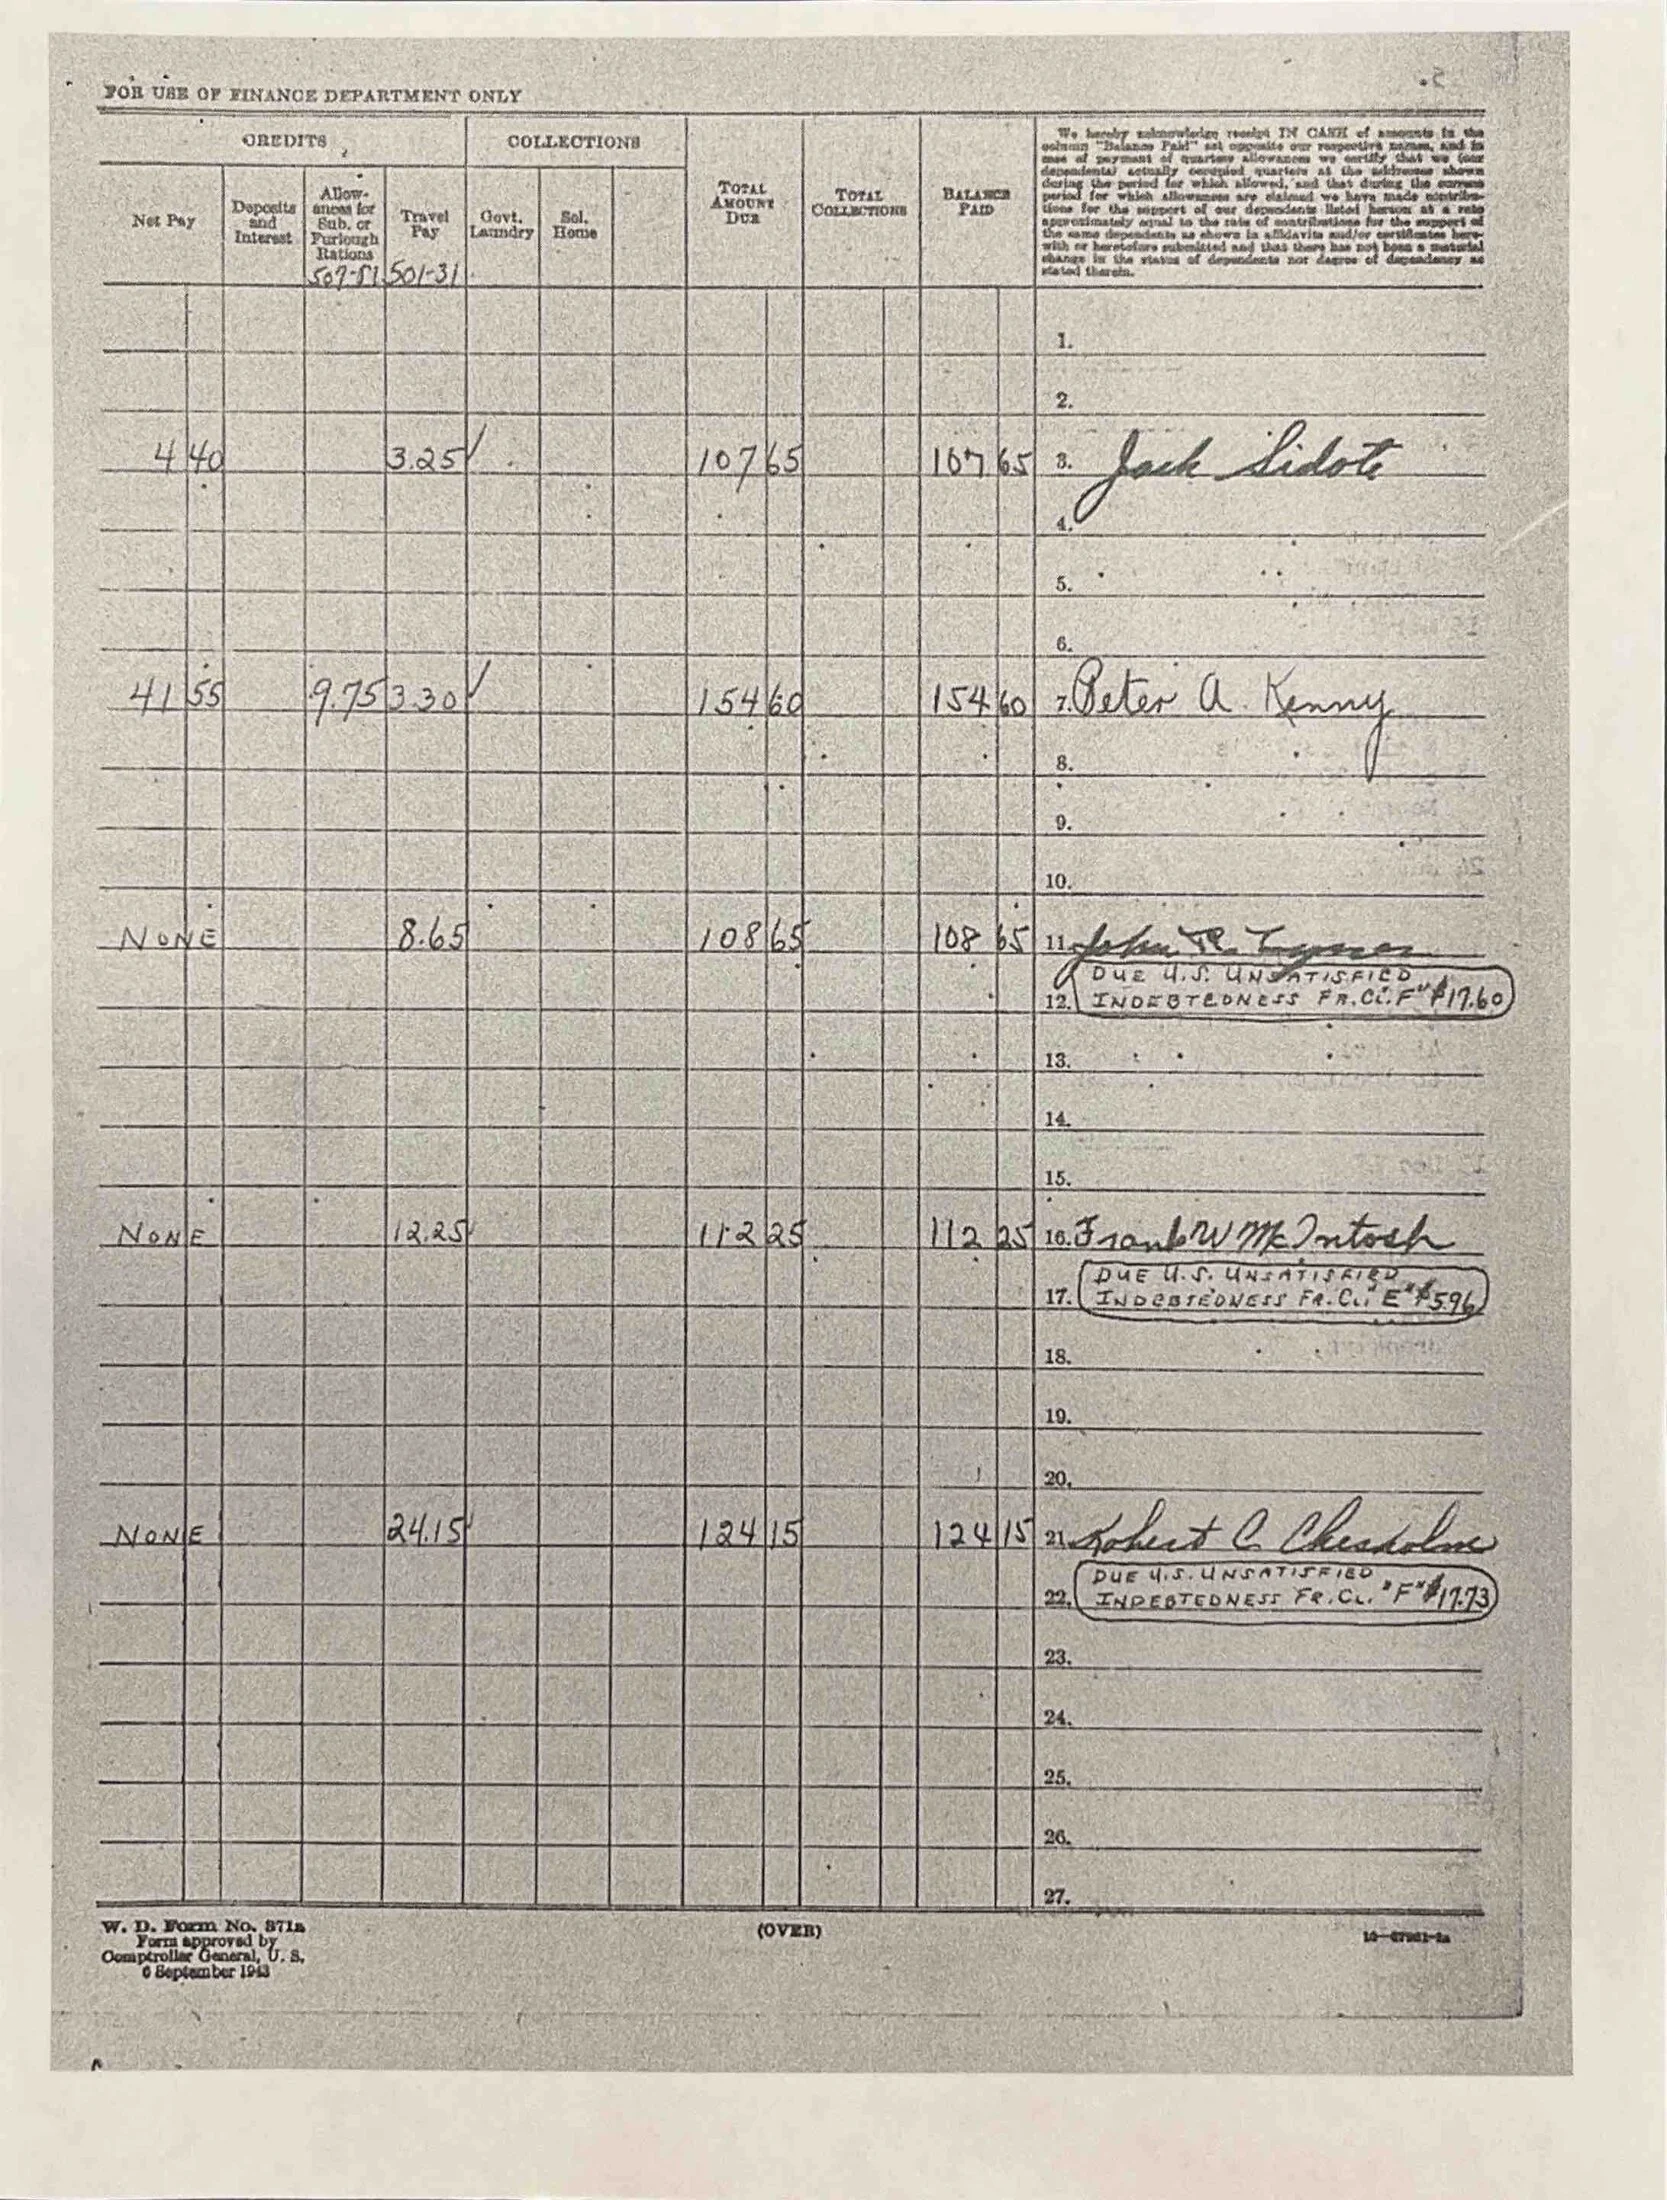 5.
FOR USE OF FINANCE DEPARTMENT ONLY
CREDITS
COLLECTIONS
TOTAL AMOUNT DUE
TOTAL COLLECTIONS
BALANCE PAID
We hereby acknowledge receipt IN CASH of amounts in the
column "Balance Paid" set opposite our respective names, and in
case of payment of quarters allowances we certify that we (our
dependents) actually occupied quarters at the addresses shown
during the period for which allowed, and that during the current
period for which allowances are claimed we have made contribu-
tions for the support of our dependents listed hereon at a rate
approximately equal to the rate of contributions for the support of
the same dependents as shown in affidavits and/or certificates here-
with or heretofore submitted and that there has not been a material
change in the status of dependents nor degree of dependency as
stated therein.
Net Pay
Deposits and Interest
Allow-
ances for
Sub. or
Furlough
Rations
507-51
Travel Pay
501-31
Govt. Laundry
Sol. Home
1.
2.
4 40 3.25 107 65 107 65 3. Jack Sidote
4.
5.
6.
41 55 9.75 3.30 154 60 154 60 7. Peter A. Kenny
8.
9.
10.
NONE 8.65 108 65 108 65 11. John R.
DUE U.S. UNSATISFIED
12. INDEBTEDNESS FR. CL. "F" $17.60
13.
14.
15.
NONE 12.25 112 25 112 25 16. Frank W McIntosh
DUE U.S. UNSATISFIED
17. INDEBTEDNESS FR. CL. "E" $5.96
18.
19.
20.
NONE 24.15 124 15 124 15 21. Robert C. Chesholm
DUE U.S. UNSATISFIED
22. INDEBTEDNESS FR. CL. "F" $17.73
23.
24.
25.
26.
27.
W. D. Form No. 371a
Form approved by
Comptroller General, U. S.
6 September 1943
(OVER)